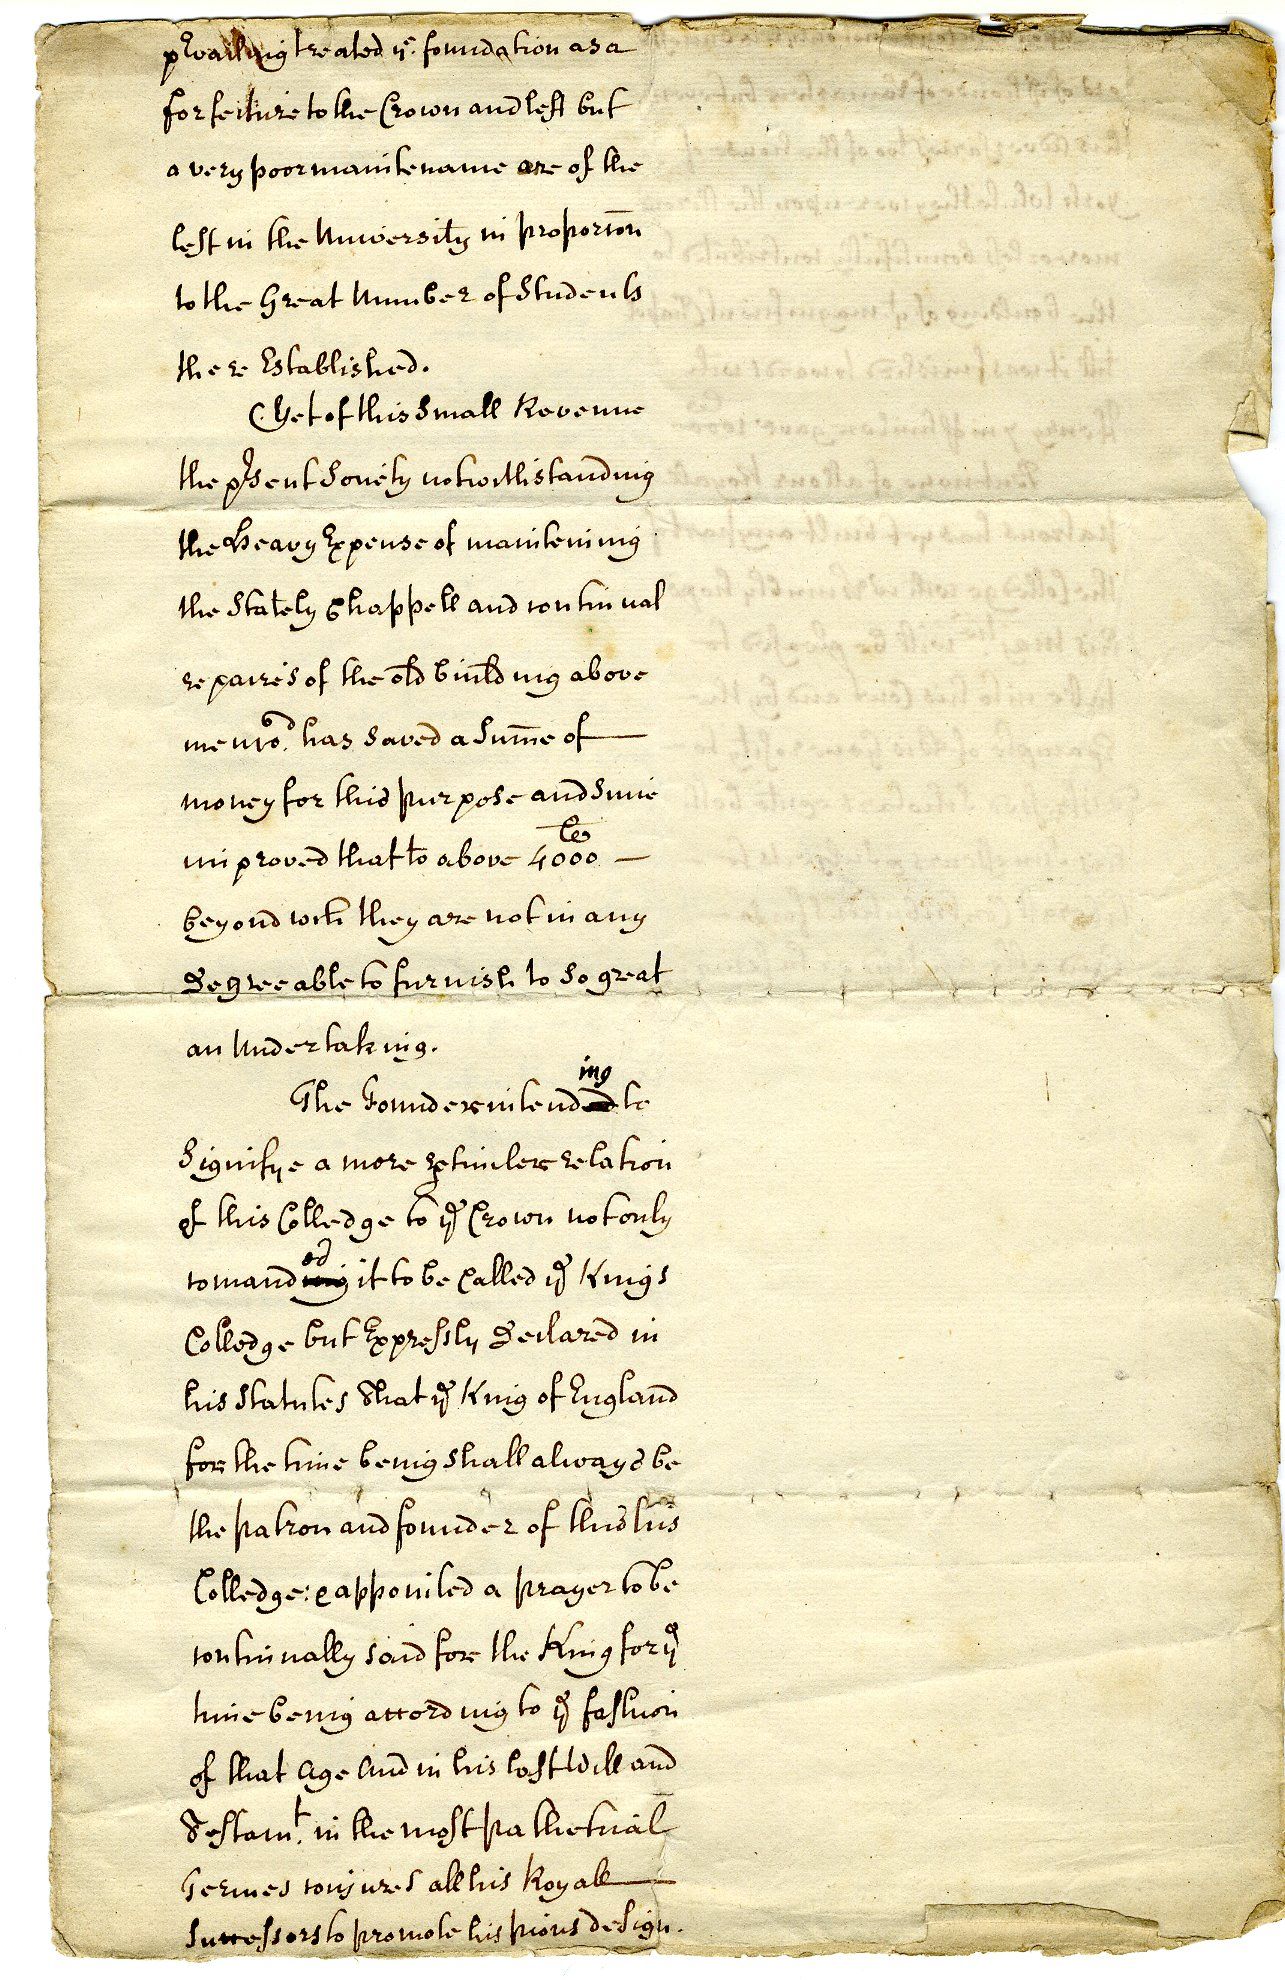 p^rvailing treated y^e foundation as a
forfeiture to the Crown and left but
a very poor maintenance one of the
lest in the University in proporc̄on
to the Great Number of Students
there Established.
Yet of this Small Revenue
the p^rsent Society notwithstanding
the Heavy Expense of mainteining
the Stately Chappell and continual
repaires of the old building above
menc̄o^d. has saved a Sum̄e of
money for this purpose and Since
improved that to above 4000^le
beyond wch they are not in any
Degree able to furnish to So great
an Undertaking.
The Founder intend~~ed~~ing to
Signifye a more p̱ticuler relation
of this Colledge to y^e Crown not only
comand~~ing~~ed it to be Called y^e Kings
Colledge but Expressly Declared in
his Statutes That y^e King of England
for the time being Shall always be
the patron and founder of this his
Colledge: & appointed a prayer to be
continually said for the King for y^e
time being according to y^e fashion
of that Age And in his last Will and
Testam^t. in the most pathetical
Termes conjures all his Royall
Successors to promote his pious design.